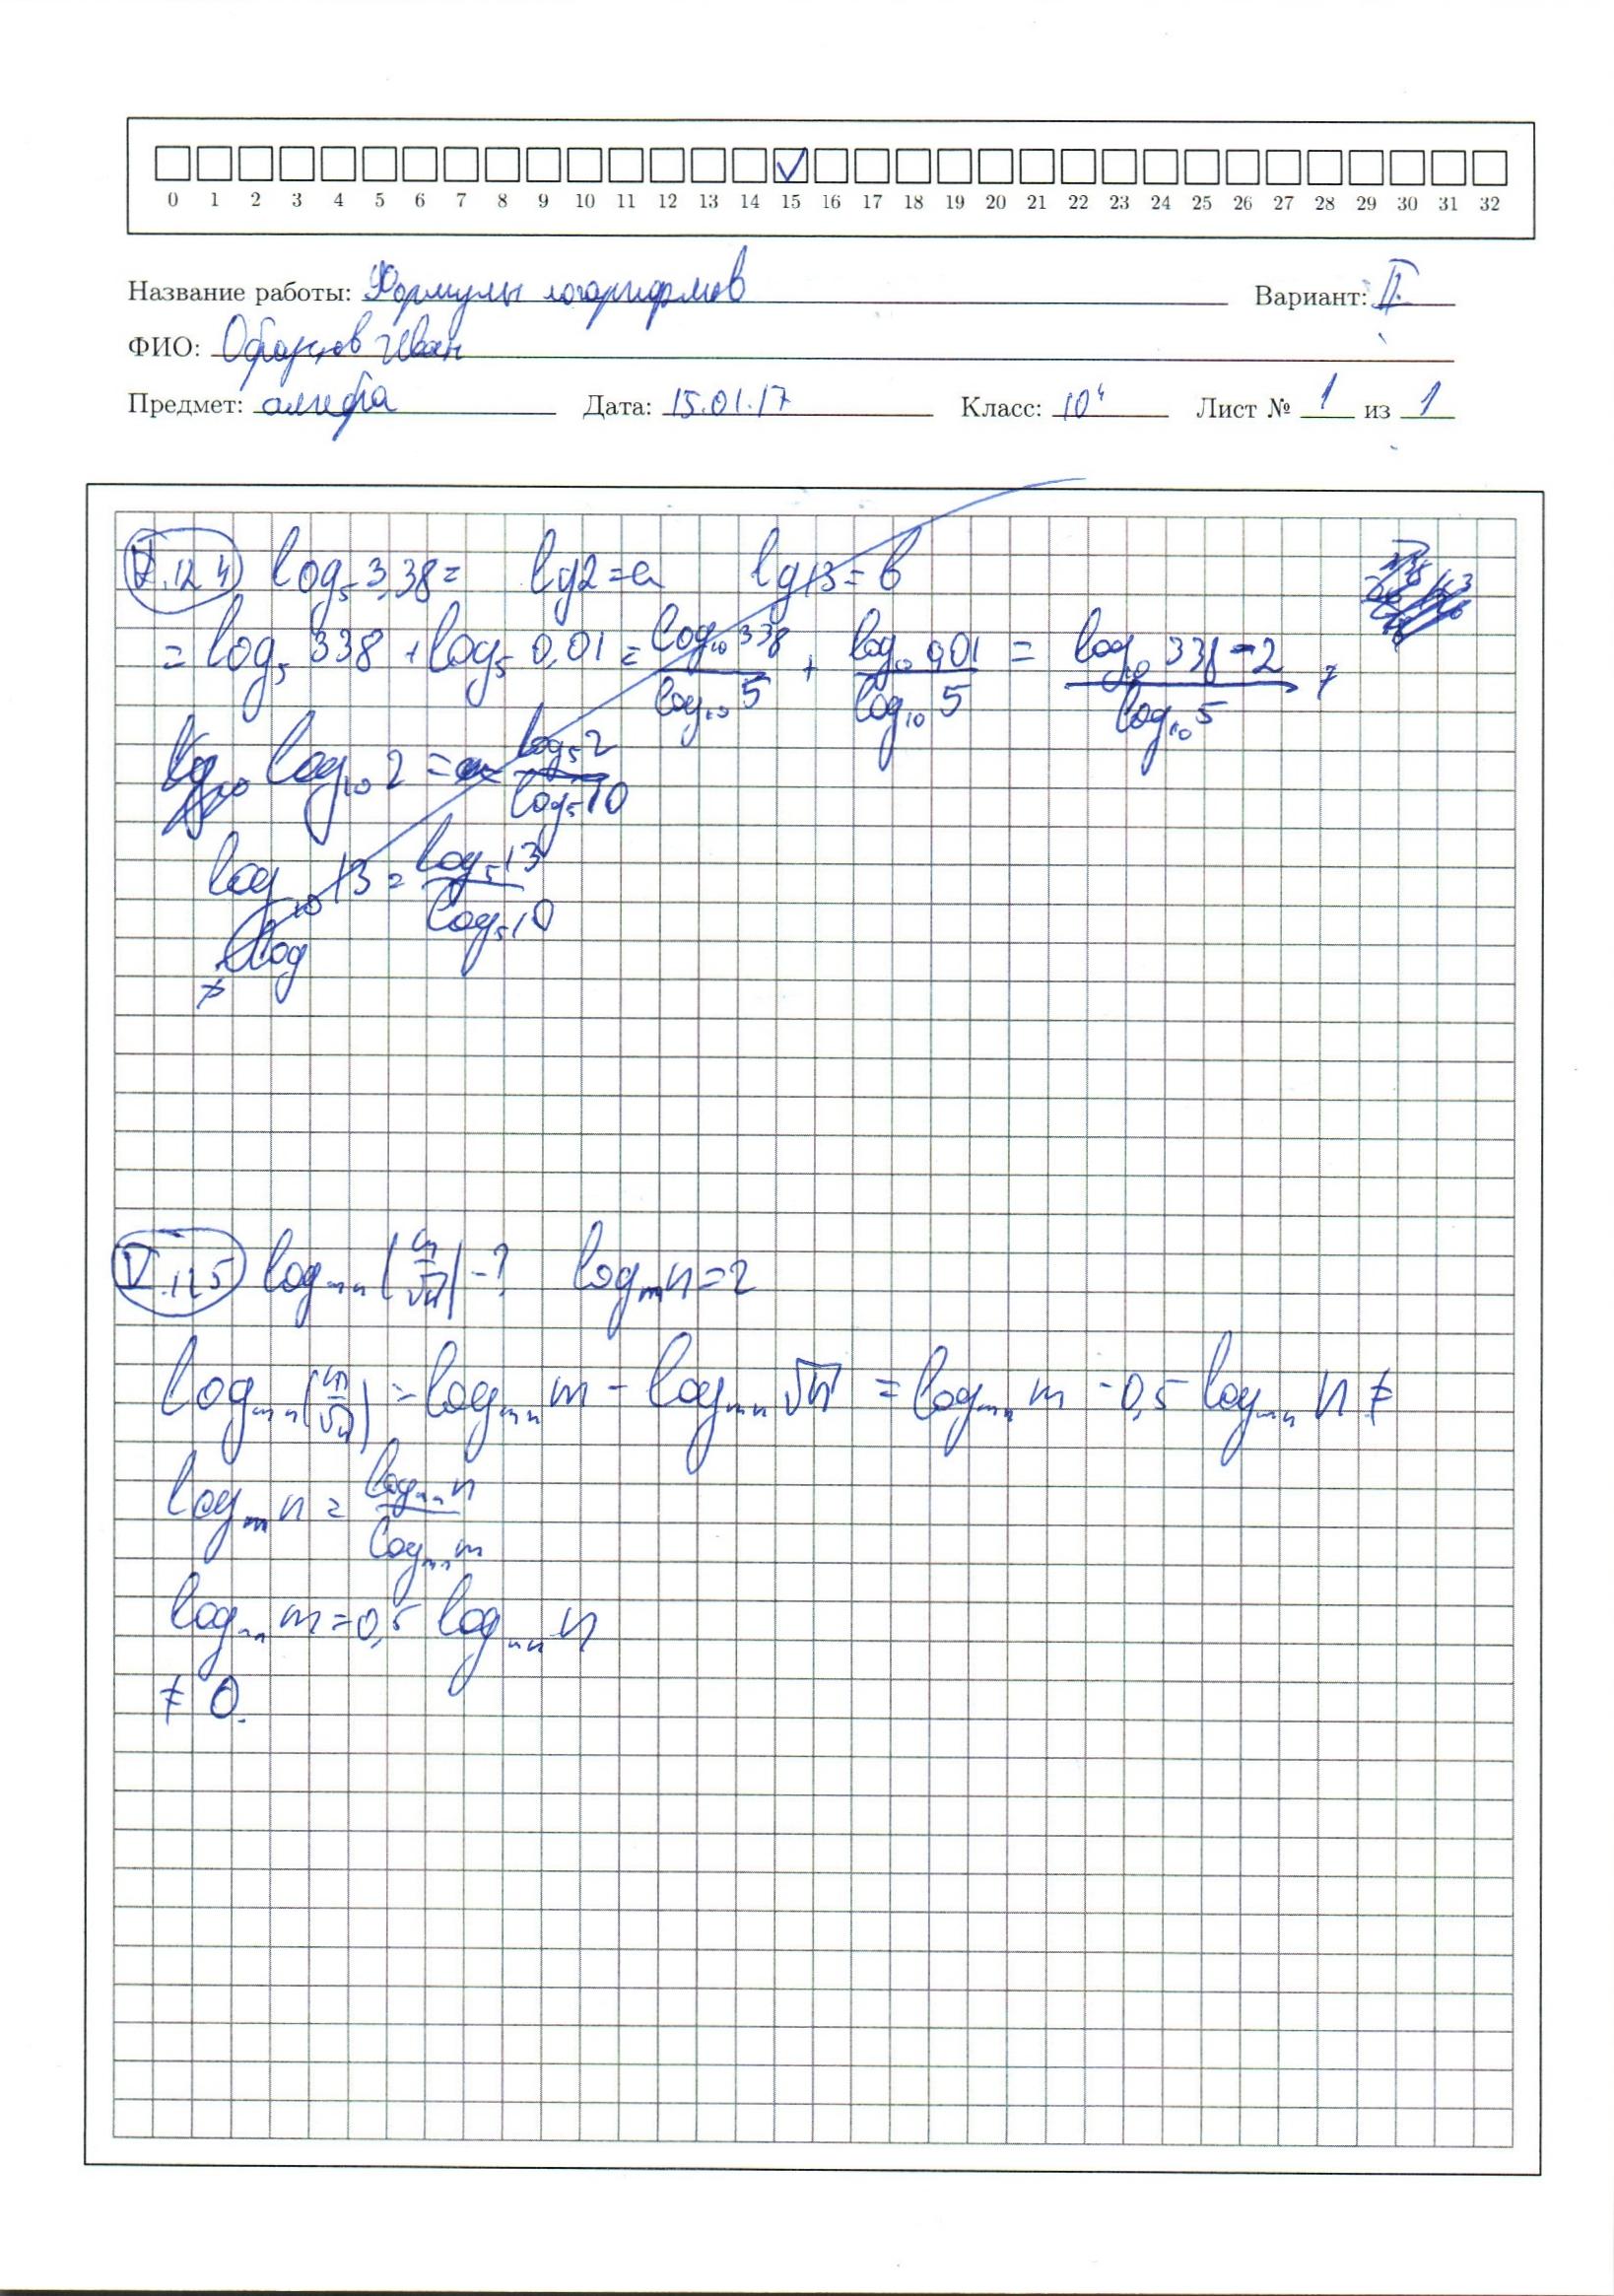 0 1 2 3 4 5 6 7 8 9 10 11 12 13 14 15 16 17 18 19 20 21 22 23 24 25 26 27 28 29 30 31 32
Название работы: Формулы логарифмов Вариант: II.
ФИО: Образцов Иван
Предмет: алгебра Дата: 15.01.17 Класс: 10ч Лист № 1 из 1
V.124 log₅ 3,38 = lg2=a lg13=b
= log₅ 338 + log₅ 0,01 = log₁₀ 338 / log₁₀ 5 + log₁₀ 0,01 / log₁₀ 5 = log₁₀ 338 - 2 / log₁₀ 5 ≠
log₁₀ 2 = a = log₅ 2 / log₅ 10
log₁₀ 13 = log₅ 13 / log₅ 10
≠ log
V.125 logₘₙ (m/√n) - ? logₘ n = 2
logₘₙ (m/√n) = logₘₙ m - logₘₙ √n = logₘₙ m - 0,5 logₘₙ n ≠
logₘ n = logₘₙ n / logₘₙ m
logₘₙ m = 0,5 logₘₙ n
≠ 0.